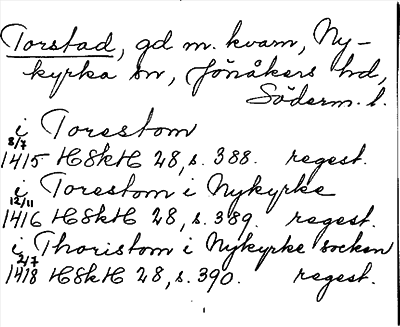 Torstad, gd m. kvarn, Ny-
kyrka sn, Jönåkers hd,
Söderm. l.
i Torestom
8/7 1415 HSkH 28, s. 388. regest.
i Torestom i Nykyrke
12/11 1416 HSkH 28, s. 389. regest.
i Thoristom i Nykyrke socken
2/7 1418 HSkH 28, s. 390. regest.